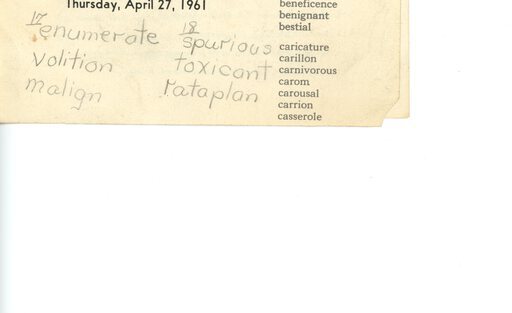 Thursday, April 27, 1961
17 18
enumerate spurious
volition toxicant
malign rataplan
beneficence
benignant
bestial
caricature
carillon
carnivorous
carom
carousal
carrion
casserole